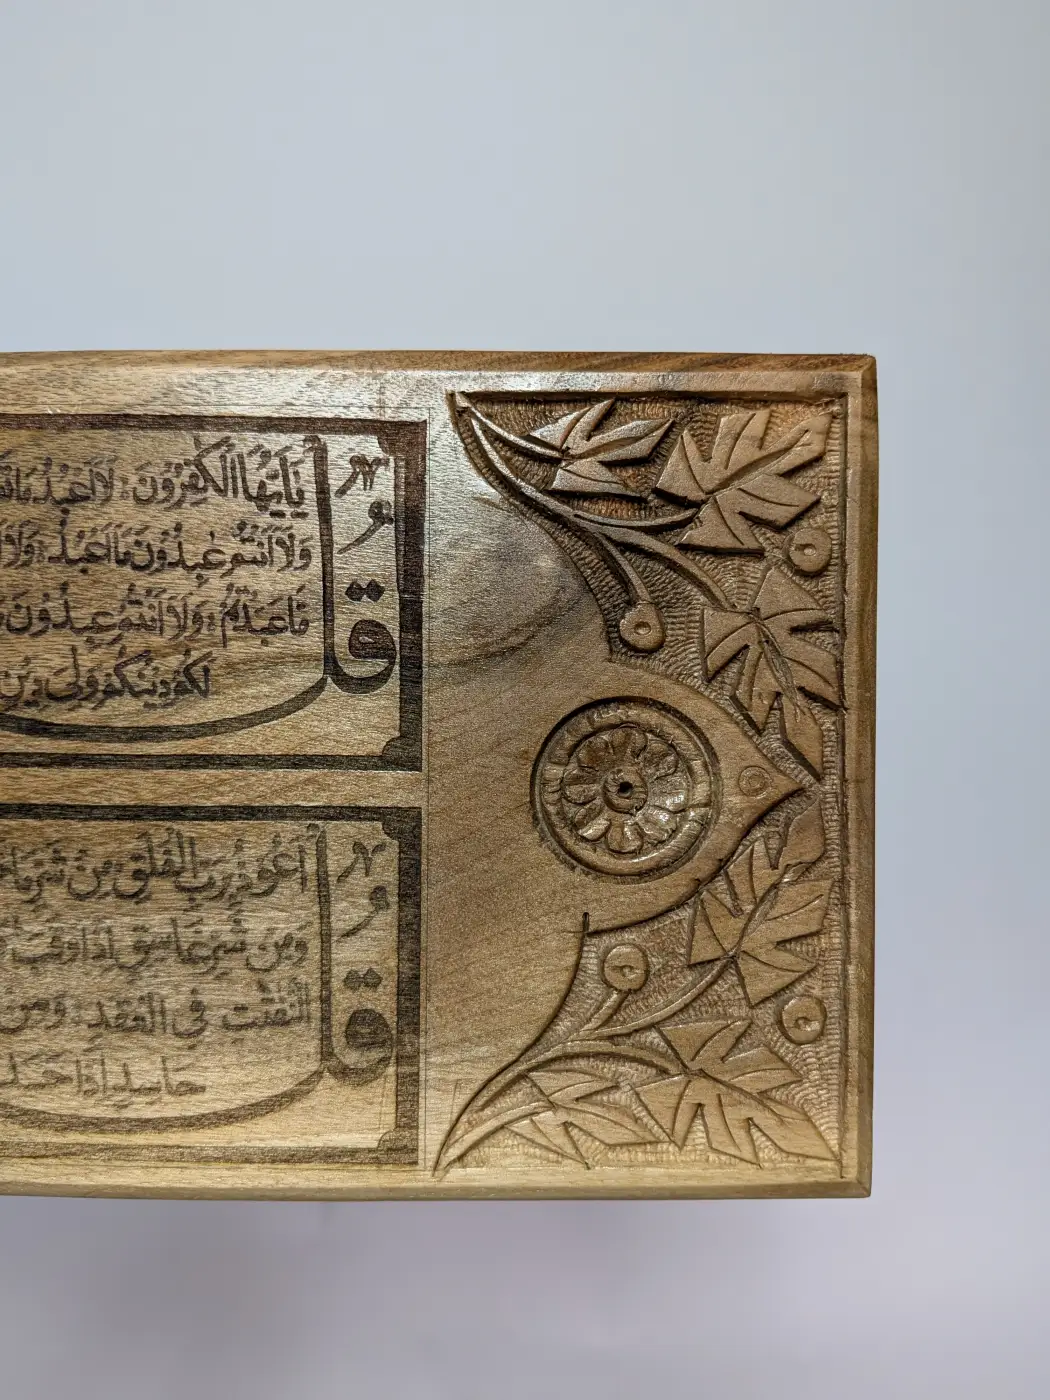 قُلْ
يَا أَيُّهَا الْكَفِرُوْنَ لَا اَعْبُدُ مَا
وَلَا اَنْتُمْ عٰبِدُوْنَ مَا اَعْبُدُ وَلَا
مَا عَبَدْتُّمْ وَلَا اَنْتُمْ عٰبِدُوْنَ
لَكُمْ دِيْنُكُمْ وَلِيَ دِيْنِ
قُلْ
اَعُوْذُ بِرَبِّ الْفَلَقِ مِنْ شَرِّ مَا
وَمِنْ شَرِّ غَاسِقٍ اِذَا وَقَبَ
النَّفّٰثٰتِ فِي الْعُقَدِ وَمِنْ
حَاسِدٍ اِذَا حَسَدَ